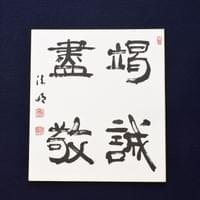 竭誠
盡敬